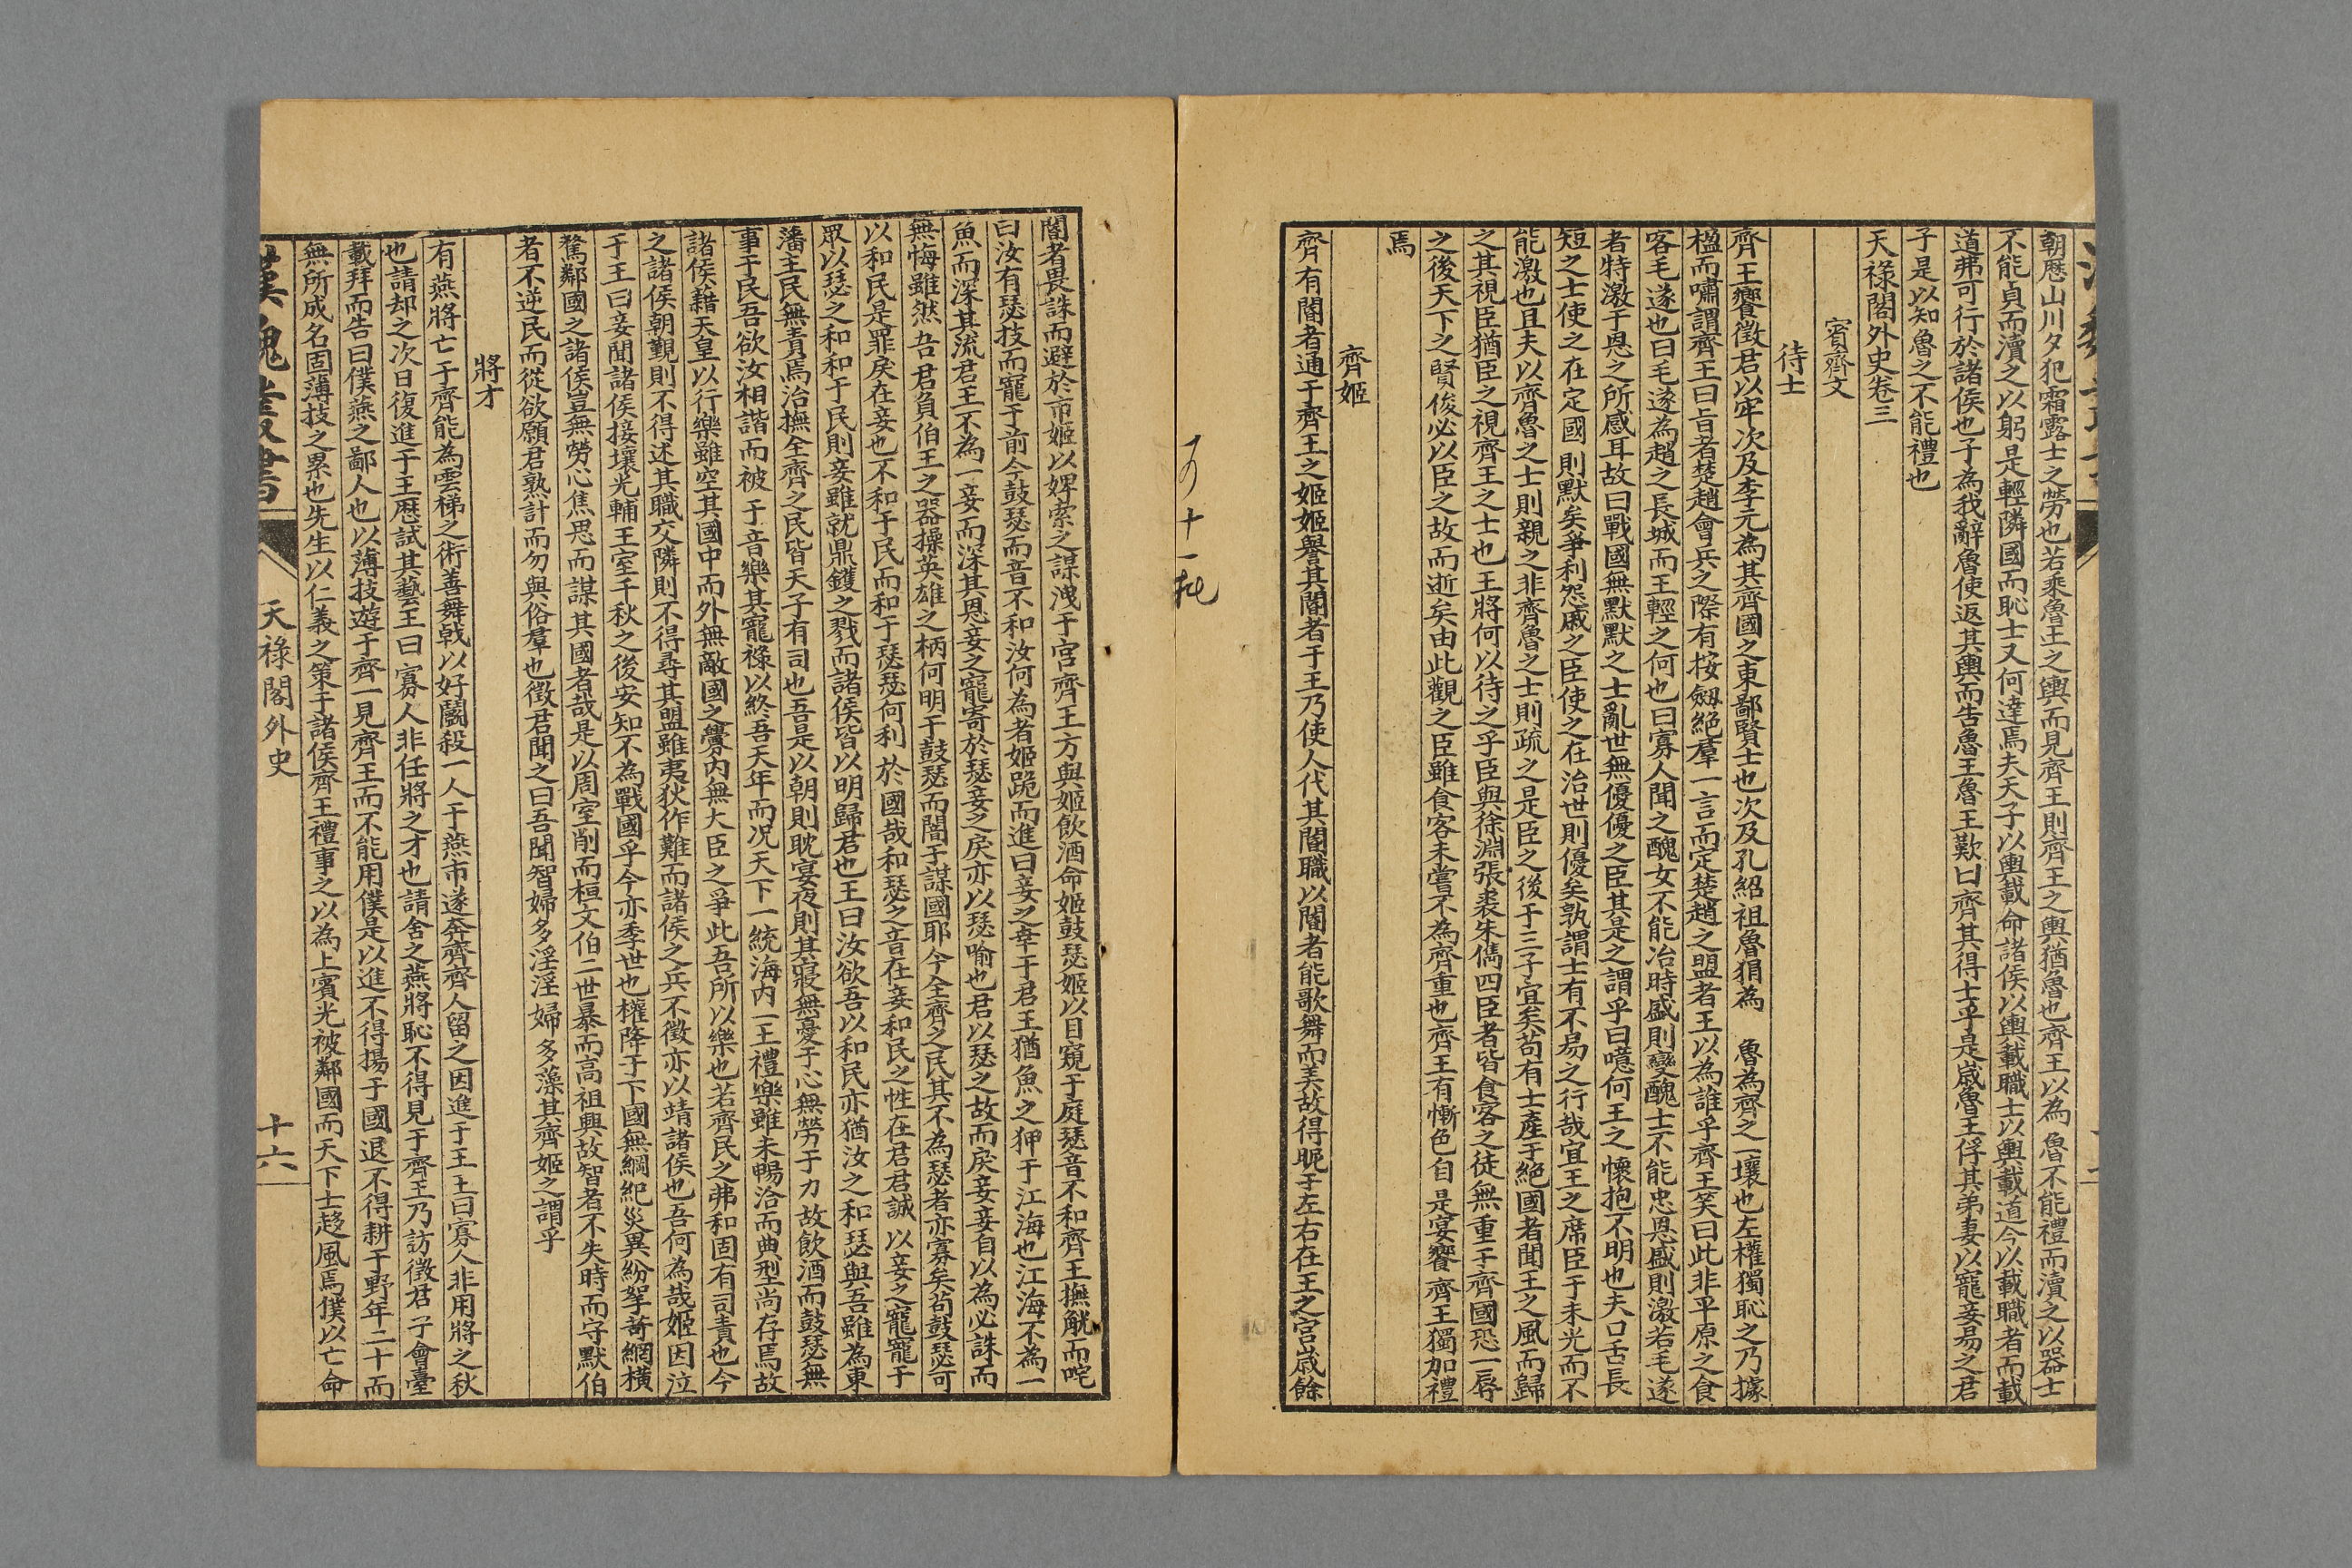 朝歷山川夕犯霜露士之勞也若乘魯王之輿而見齊王則齊王之輿猶魯也齊王以為魯不能禮而瀆之以器士
不能貞而瀆之以躬是輕隣國而恥士又何達焉夫天子以輿載命諸侯以輿載職士以輿載道今以載職者而載
道弗可行於諸侯也子為我辭魯使返其輿而告魯王魯王歎曰齊其得士乎是歲魯王俘其弟妻以寵妾易之君
子是以知魯之不能禮也
天祿閣外史卷三
賓齊文
待士
齊王饗徵君以牢次及李元為其齊國之東鄙賢士也次及孔紹祖魯狷為 魯為齊之一壤也左權獨恥之乃據
楹而嘯謂齊王曰昔者楚趙會兵之際有按劔絕羣一言而定楚趙之盟者王以為誰乎齊王笑曰此非平原之食
客毛遂也曰毛遂為趙之長城而王輕之何也曰寡人聞之醜女不能冶時盛則變醜士不能忠恩盛則激若毛遂
者特激于恩之所感耳故曰戰國無默默之士亂世無優優之臣其是之謂乎曰噫何王之懷抱不明也夫口舌長
短之士使之在定國則默矣爭利怨戚之臣使之在治世則優矣孰謂士有不易之行哉宜王之席臣于未光而不
能激也且夫以齊魯之士則親之非齊魯之士則疏之是臣之後于三子宜矣苟有士產于絕國者聞王之風而歸
之其視臣猶臣之視齊王之士也王將何以待之乎臣與徐淵張裘朱儁四臣者皆食客之徒無重于齊國恐一辱
之後天下之賢俊必以臣之故而逝矣由此觀之臣雖食客未嘗不為齊重也齊王有慚色自是宴饗齊王獨加禮
焉
齊姬
齊有閽者通于齊王之姬姬譽其閽者于王乃使人代其閽職以閽者能歌舞而美故得昵于左右在王之宮歲餘
五十一扎
閽者畏誅而避於市姬以婢索之謀洩于宮齊王方與姬飲酒命姬鼓瑟姬以目窺于庭瑟音不和齊王撫觥而咤
曰汝有瑟技而寵于前今鼓瑟而音不和汝何為者姬跪而進曰妾之幸于君王猶魚之狎于江海也江海不為一
魚而深其流君王不為一妾而深其恩妾之寵寄於瑟妾之戾亦以瑟喻也君以瑟之故而戾妾妾自以為必誅而
無悔雖然吾君負伯王之器操英雄之柄何明于鼓瑟而闇于謀國耶今全齊之民其不為瑟者亦寡矣苟鼓瑟可
以和民是罪戾在妾也不和于民而和于瑟瑟何利於國哉和瑟之音在妾和民之性在君君誠以妾之寵寵于
眾以瑟之和和于民則妾雖就鼎鑊之戮而諸侯皆以明歸君也王曰汝欲吾以和民亦猶汝之和瑟與吾雖為東
藩主民無責焉治撫全齊之民皆天子有司也吾是以朝則耽宴夜則其寢無憂于心無勞于力故飲酒而鼓瑟無
事于民吾欲汝相諧而被于音樂其寵祿以終吾天年而況天下一統海內一王禮樂雖未暢洽而典型尚存焉故
諸侯藉天皇以行樂雖空其國中而外無敵國之釁內無大臣之爭此吾所以樂也若齊民之弗和固有司責也今
之諸侯朝覲則不得述其職交隣則不得尋其盟雖夷狄作難而諸侯之兵不徵亦以靖諸侯也吾何為哉姬因泣
于王曰妾聞諸侯接壤光輔王室千秋之後安知不為戰國乎今亦季世也權降于下國無綱紀災異紛挐苛網橫
騖鄰國之諸侯豈無勞心焦思而謀其國者哉是以周室削而桓文伯二世暴而高祖興故智者不失時而守默伯
者不逆民而從欲願君熟計而勿與俗羣也徵君聞之曰吾聞智婦多淫淫婦多藻其齊姬之謂乎
將才
有燕將亡于齊能為雲梯之術善舞戟以好鬬殺一人于燕市遂奔齊齊人留之因進于王王曰寡人非用將之秋
也請却之次日復進于王歷試其藝王曰寡人非任將之才也請舍之燕將恥不得見于齊王乃訪徵君子會臺
載拜而告曰僕燕之鄙人也以薄技遊于齊一見齊王而不能用僕是以進不得揚于國退不得耕于野年二十而
無所成名固薄技之累也先生以仁義之策于諸侯齊王禮事之以為上賓光被鄰國而天下士趍風焉僕以亡命
漢魏叢書 天祿閣外史 十六